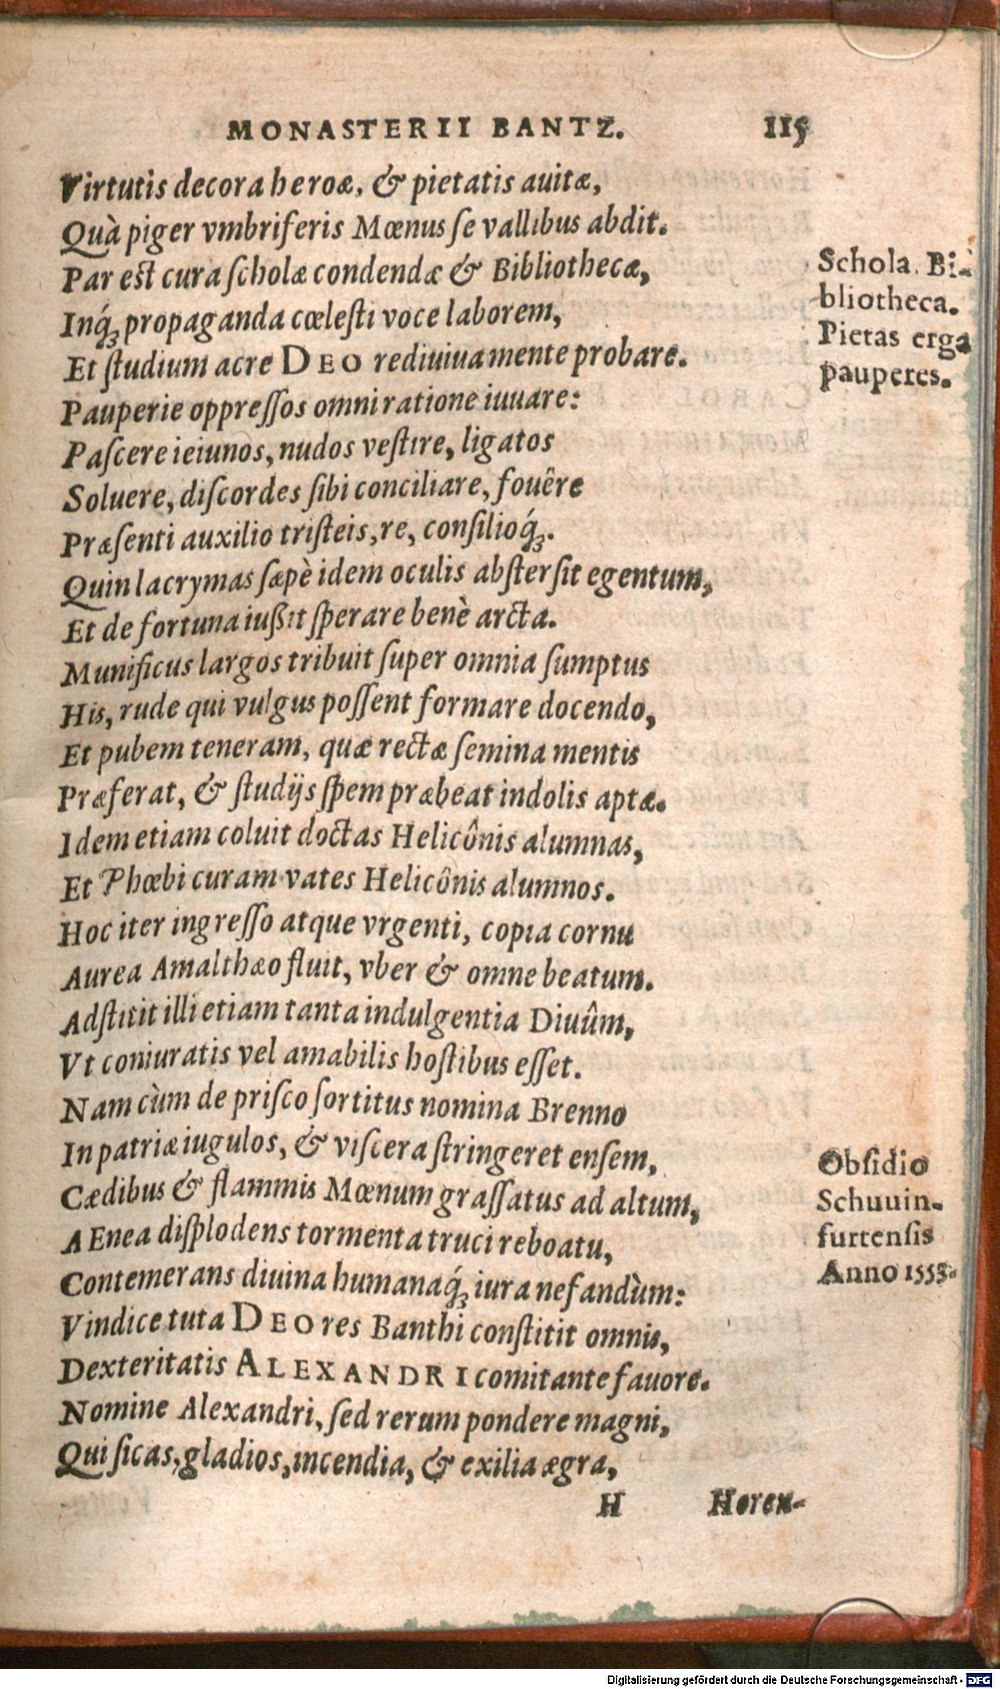 MONASTERII BANTZ. 115
Virtutis decora heroæ, & pietatis auitæ,
Quà piger vmbriferis Mœnus se vallibus abdit.
Par est cura scholæ condendæ & Bibliothecæ,
Schola. Bi-
bliotheca.
Inq́; propaganda cœlesti voce laborem,
Et studium acre DEO rediuiua mente probare.
Pietas erga
pauperes.
Pauperie oppressos omni ratione iuuare:
Pascere ieiunos, nudos vestire, ligatos
Soluere, discordes sibi conciliare, fouêre
Præsenti auxilio tristeis, re, consilioq́;.
Quin lacrymas sæpè idem oculis abstersit egentum,
Et de fortuna iußit sperare benè arcta.
Munificus largos tribuit super omnia sumptus
His, rude qui vulgus possent formare docendo,
Et pubem teneram, quæ rectæ semina mentis
Præferat, & studijs spem præbeat indolis aptæ.
Idem etiam coluit doctas Helicônis alumnas,
Et Phœbi curam vates Helicônis alumnos.
Hoc iter ingresso atque vrgenti, copia cornu
Aurea Amalthæo fluit, vber & omne beatum.
Adstitit illi etiam tanta indulgentia Diuûm,
Vt coniuratis vel amabilis hostibus esset.
Nam cùm de prisco sortitus nomina Brenno
In patriæ iugulos, & viscera stringeret ensem,
Cædibus & flammis Mœnum grassatus ad altum,
AEnea displodens tormenta truci reboatu,
Contemerans diuina humanaq́; iura nefandùm:
Obsidio
Schuuin-
furtensis
Anno 1553.
Vindice tuta DEO res Banthi constitit omnis,
Dexteritatis ALEXANDRI comitante fauore.
Nomine Alexandri, sed rerum pondere magni,
Qui sicas, gladios, incendia, & exilia ægra,
H Horen-
Digitalisierung gefördert durch die Deutsche Forschungsgemeinschaft - DFG